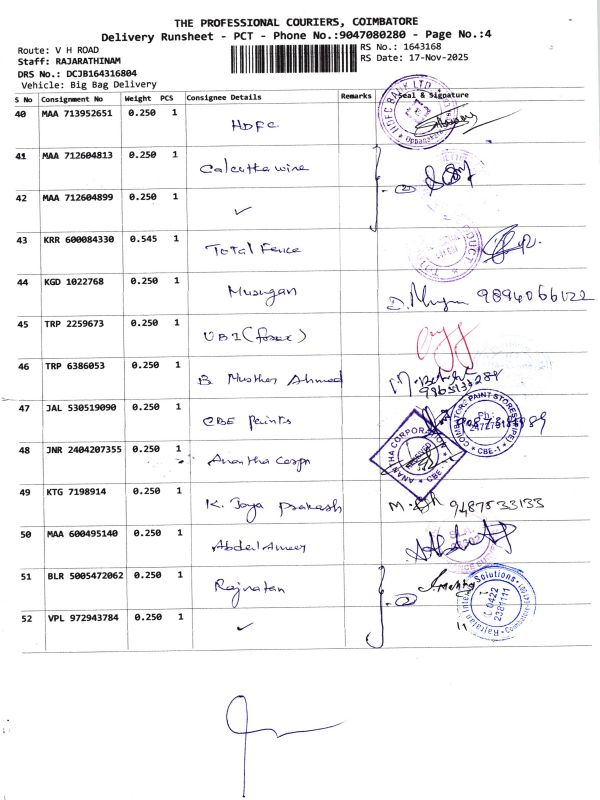 THE PROFESSIONAL COURIERS, COIMBATORE
Delivery Runsheet - PCT - Phone No.:9047080280 - Page No.:4
Route: V H ROAD
RS No.: 1643168
Staff: RAJARATHINAM
RS Date: 17-Nov-2025
DRS No.: DCJB164316804
Vehicle: Big Bag Delivery
S No Consignment No Weight PCS Consignee Details Remarks Seal & Signature
40 MAA 713952651 0.250 1 HDFC
HDFC BANK LTD
41 MAA 712604813 0.250 1 Calcutta wire
42 MAA 712604899 0.250 1 ✓
43 KRR 600084330 0.545 1 Total Fence
44 KGD 1022768 0.250 1 Murugan 9894066122
45 TRP 2259673 0.250 1 UBI (forex)
46 TRP 6386053 0.250 1 B. Musther Ahmed
9965133289
47 JAL 530519090 0.250 1 CBE Paints
COIMBATORE PAINT STORES
CBE-1
48 JNR 2404207355 0.250 1 Anantha Corpn
ANANTHA CORPORATION
CBE
49 KTG 7198914 0.250 1 K. Jaya prakash 9487533133
50 MAA 600495140 0.250 1 Abdul Ameer
51 BLR 5005472062 0.250 1 Rajratan
Solutions
0422
2381111
52 VPL 972943784 0.250 1 ✓